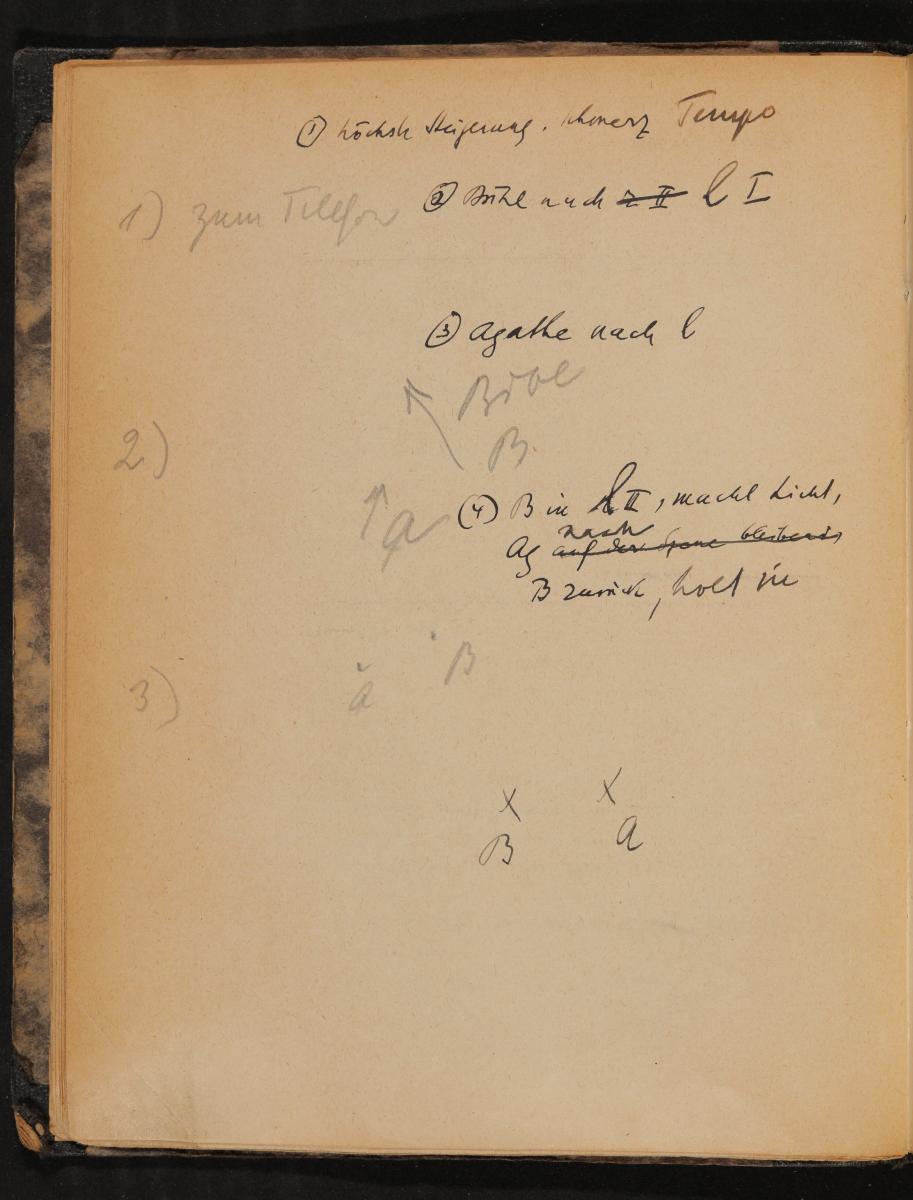 ① höchste Steigerung. Schmerz Tempo
1) zum Telefon
② Brühl nach r II l I
③ Agathe nach l
Brühl
2)
B.
a
④ B in l II, macht Licht,
nach
Ag auf der Szene bleibend,
B zurück, holt sie
B
3)
a
x x
B a